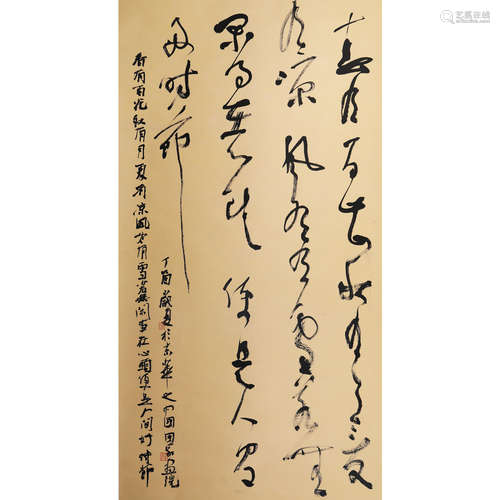 春有百花秋有月夏
有凉风冬有雪若无
闲事挂心头便是人间
好时节
丁酉歲夏於京華之中国国家画院
春有百花秋有月夏有凉风冬有雪若無闲事在心頭便是人间好时节